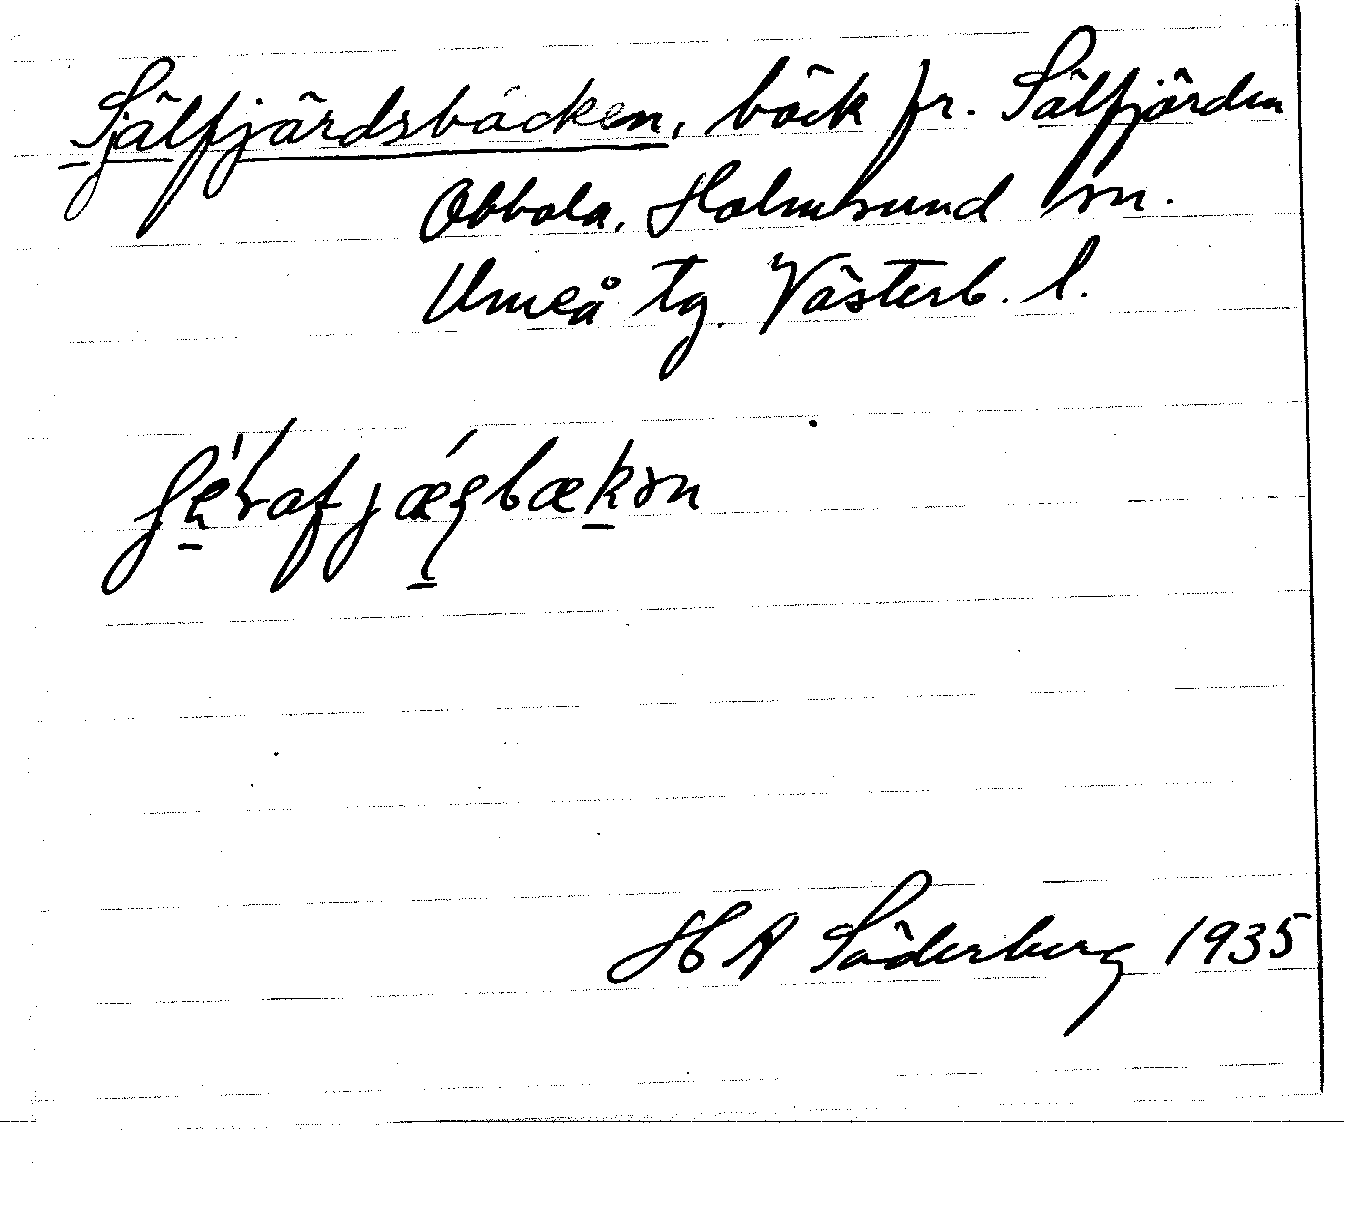 Själfjärdsbäcken, bäck fr. Sälfjärden
Obbola, Holmsund sn.
Umeå tg. Västerb. l.
H A Söderberg 1935